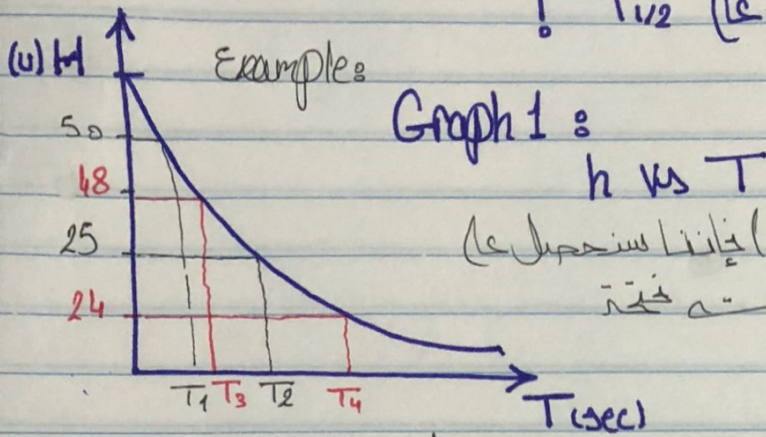 ! T1/2
Example:
Graph 1 :
h vs T
فإننا سنحصل
50
48
25
24
T1 T3 T2 T4
T(sec)